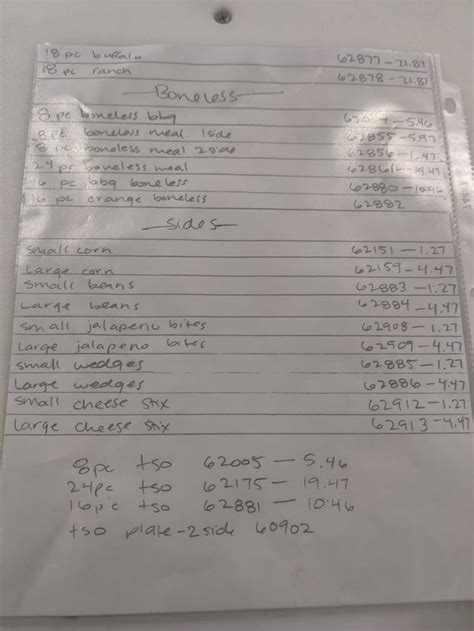 18 pc buffala 62877-21.87
18 pc ranch 62878-21.87
Boneless
8 pc boneless bbq -5.46
8 pc boneless meal 1side 62855-5.97
8 pc boneless meal 2side 62856
24 pc boneless meal 62861-19.47
16 pc bbq boneless 62880-10.46
16 pc orange boneless 62882
Sides
small corn 62151-1.27
Large corn 62159-4.47
small beans 62883-1.27
Large beans 62884-4.47
small jalapeno bites 62908-1.27
Large jalapeno bites 62909-4.47
small wedges 62885-1.27
Large wedges 62886-4.47
small cheese stix 62912-1.27
Large cheese stix 62913-4.47
8pc tso 62005-5.46
24pc tso 62175-19.47
16pc tso 62881-10.46
tso plate-2side 60902